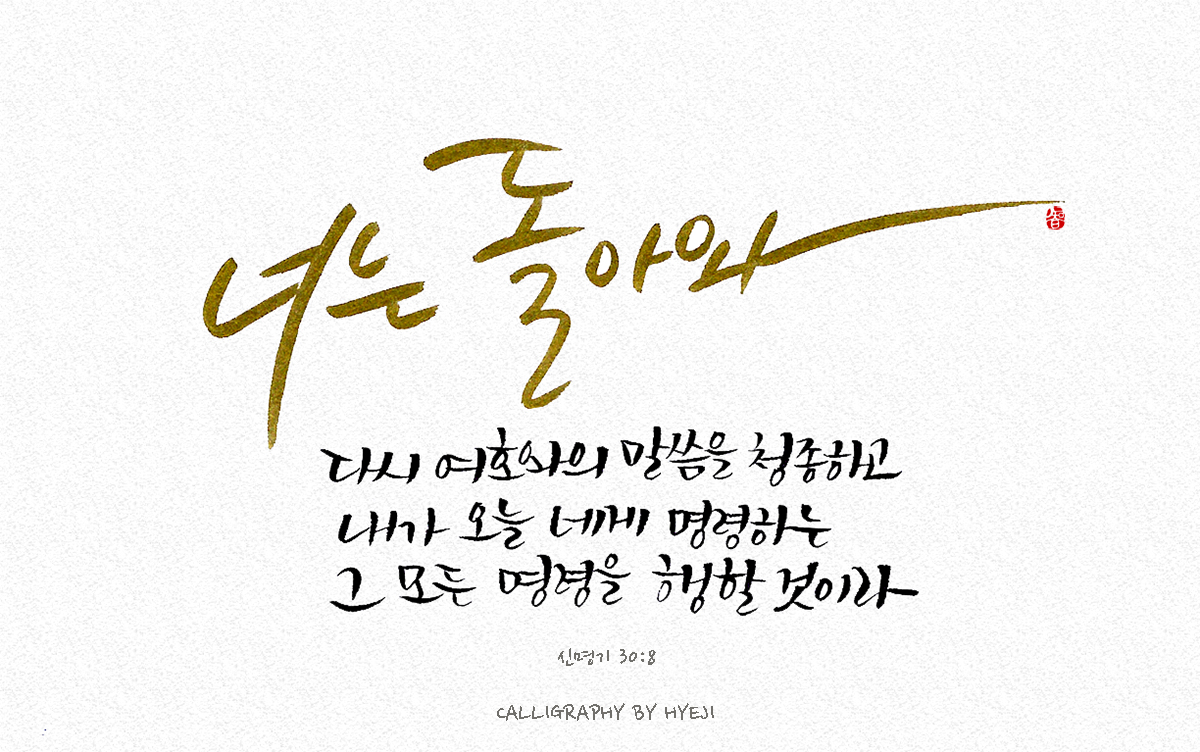 너는 돌아와
智
다시 여호와의 말씀을 청종하고
내가 오늘 네게 명령하는
그 모든 명령을 행할 것이라
신명기 30:8
CALLIGRAPHY BY HYEJI